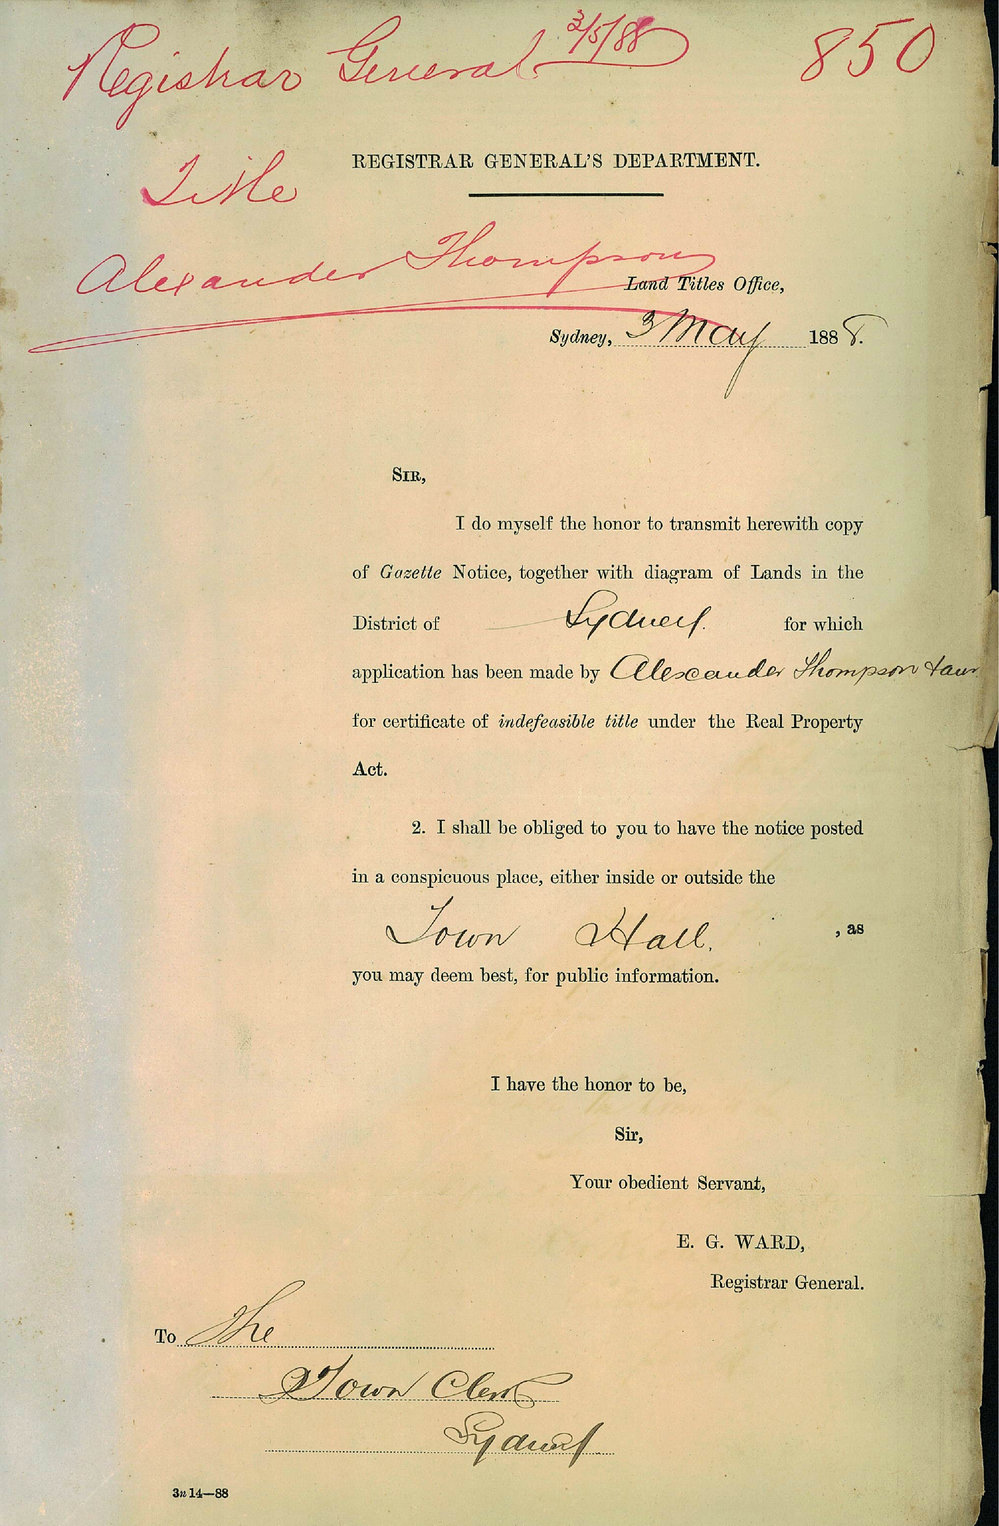 Registrar General 3/5/88 850
REGISTRAR GENERAL'S DEPARTMENT.
Title
Alexander Thompson
Land Titles Office,
Sydney, 3 May 1888.
SIR,
I do myself the honor to transmit herewith copy
of Gazette Notice, together with diagram of Lands in the
District of Sydney. for which
application has been made by Alexander Thompson
for certificate of indefeasible title under the Real Property
Act.
2. I shall be obliged to you to have the notice posted
in a conspicuous place, either inside or outside the
Town Hall. , as
you may deem best, for public information.
I have the honor to be,
Sir,
Your obedient Servant,
E. G. WARD,
Registrar General.
To The
Town Clerk
Sydney.
3n 14—88